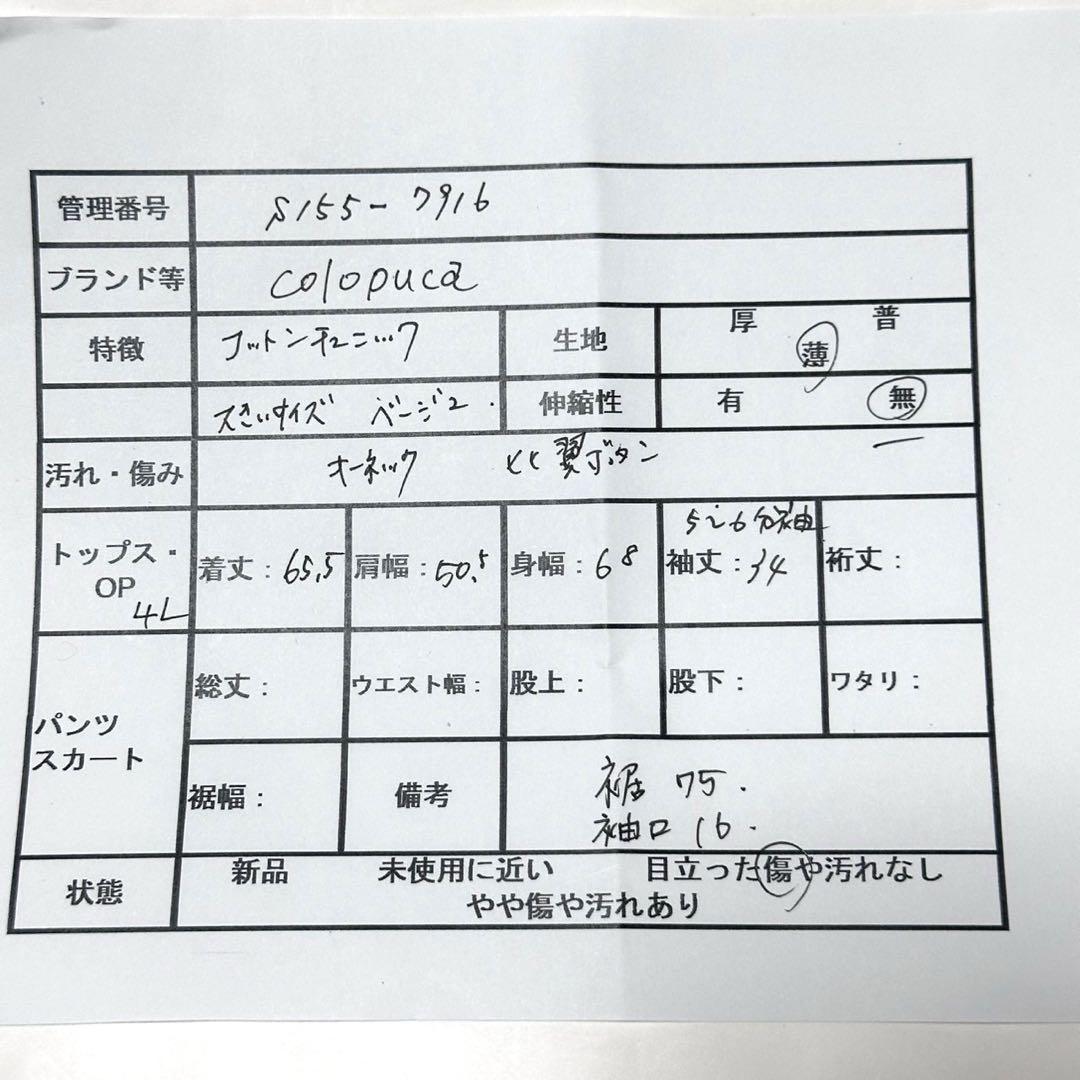 管理番号 S155-7916
ブランド等 colopuca
特徴 コットンチュニック 生地 厚 薄 普
大きいサイズ ベージュ. 伸縮性 有 無
汚れ・傷み オーネック 比翼ボタン
5~6分袖
トップス・OP 4L 着丈:65.5 肩幅:50.5 身幅:68 袖丈:34 裄丈:
パンツ スカート 総丈: ウエスト幅: 股上: 股下: ワタリ:
裾幅: 備考 裾 75.
袖口 16.
状態 新品 未使用に近い 目立った傷や汚れなし
やや傷や汚れあり